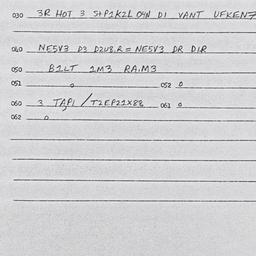 030 3R HOT 3 S+P1K2L O4N DI VANT UFKEN7
040 NE5V3 D3 D2U8.R = NE5V3 DR DIR
050 B1LT 1M3 RA.M3
051 0 052 0
060 3 TAP1 / T2EP21X88 061 0
062 0